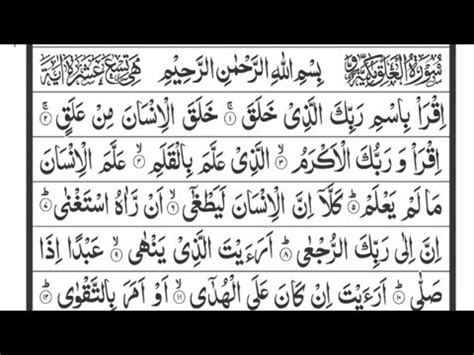 سُوْرَةُ الْعَلَقِ مَكِّيَّةٌ وَّ بِسْمِ اللهِ الرَّحْمٰنِ الرَّحِيْمِ هِىَ تِسْعَ عَشْرَةَ اٰيَةً
اِقْرَاْ بِاسْمِ رَبِّكَ الَّذِىْ خَلَقَ ۚ ١ خَلَقَ الْاِنْسَانَ مِنْ عَلَقٍ ۚ ٢
اِقْرَاْ وَ رَبُّكَ الْاَكْرَمُ ۙ ٣ الَّذِىْ عَلَّمَ بِالْقَلَمِ ۙ ٤ عَلَّمَ الْاِنْسَانَ
مَا لَمْ يَعْلَمْ ؕ ٥ كَلَّآ اِنَّ الْاِنْسَانَ لَيَطْغٰٓى ۙ ٦ اَنْ رَّاٰهُ اسْتَغْنٰى ؕ ٧
اِنَّ اِلٰى رَبِّكَ الرُّجْعٰى ؕ ٨ اَرَءَيْتَ الَّذِىْ يَنْهٰى ۙ ٩ عَبْدًا اِذَا
صَلّٰى ؕ ١٠ اَرَءَيْتَ اِنْ كَانَ عَلَى الْهُدٰٓى ۙ ١١ اَوْ اَمَرَ بِالتَّقْوٰى ؕ ١٢